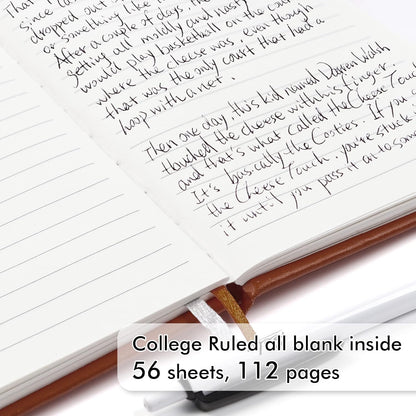 That
since ca
dropped out
or something like
After a couple of days, the
getting all moldy and nasty
would play basketball on the cour
where the cheese was, even though
that was the only court that had a
hoop with a net.
Then one day, this kid named Darren Walsh
touched the cheese with his finger,
and that's what called the Cheese Touc
It's basically the Cooties. If you g
the Cheese Touch, you're stuck
it until you pass it on to some
College Ruled all blank inside
56 sheets, 112 pages